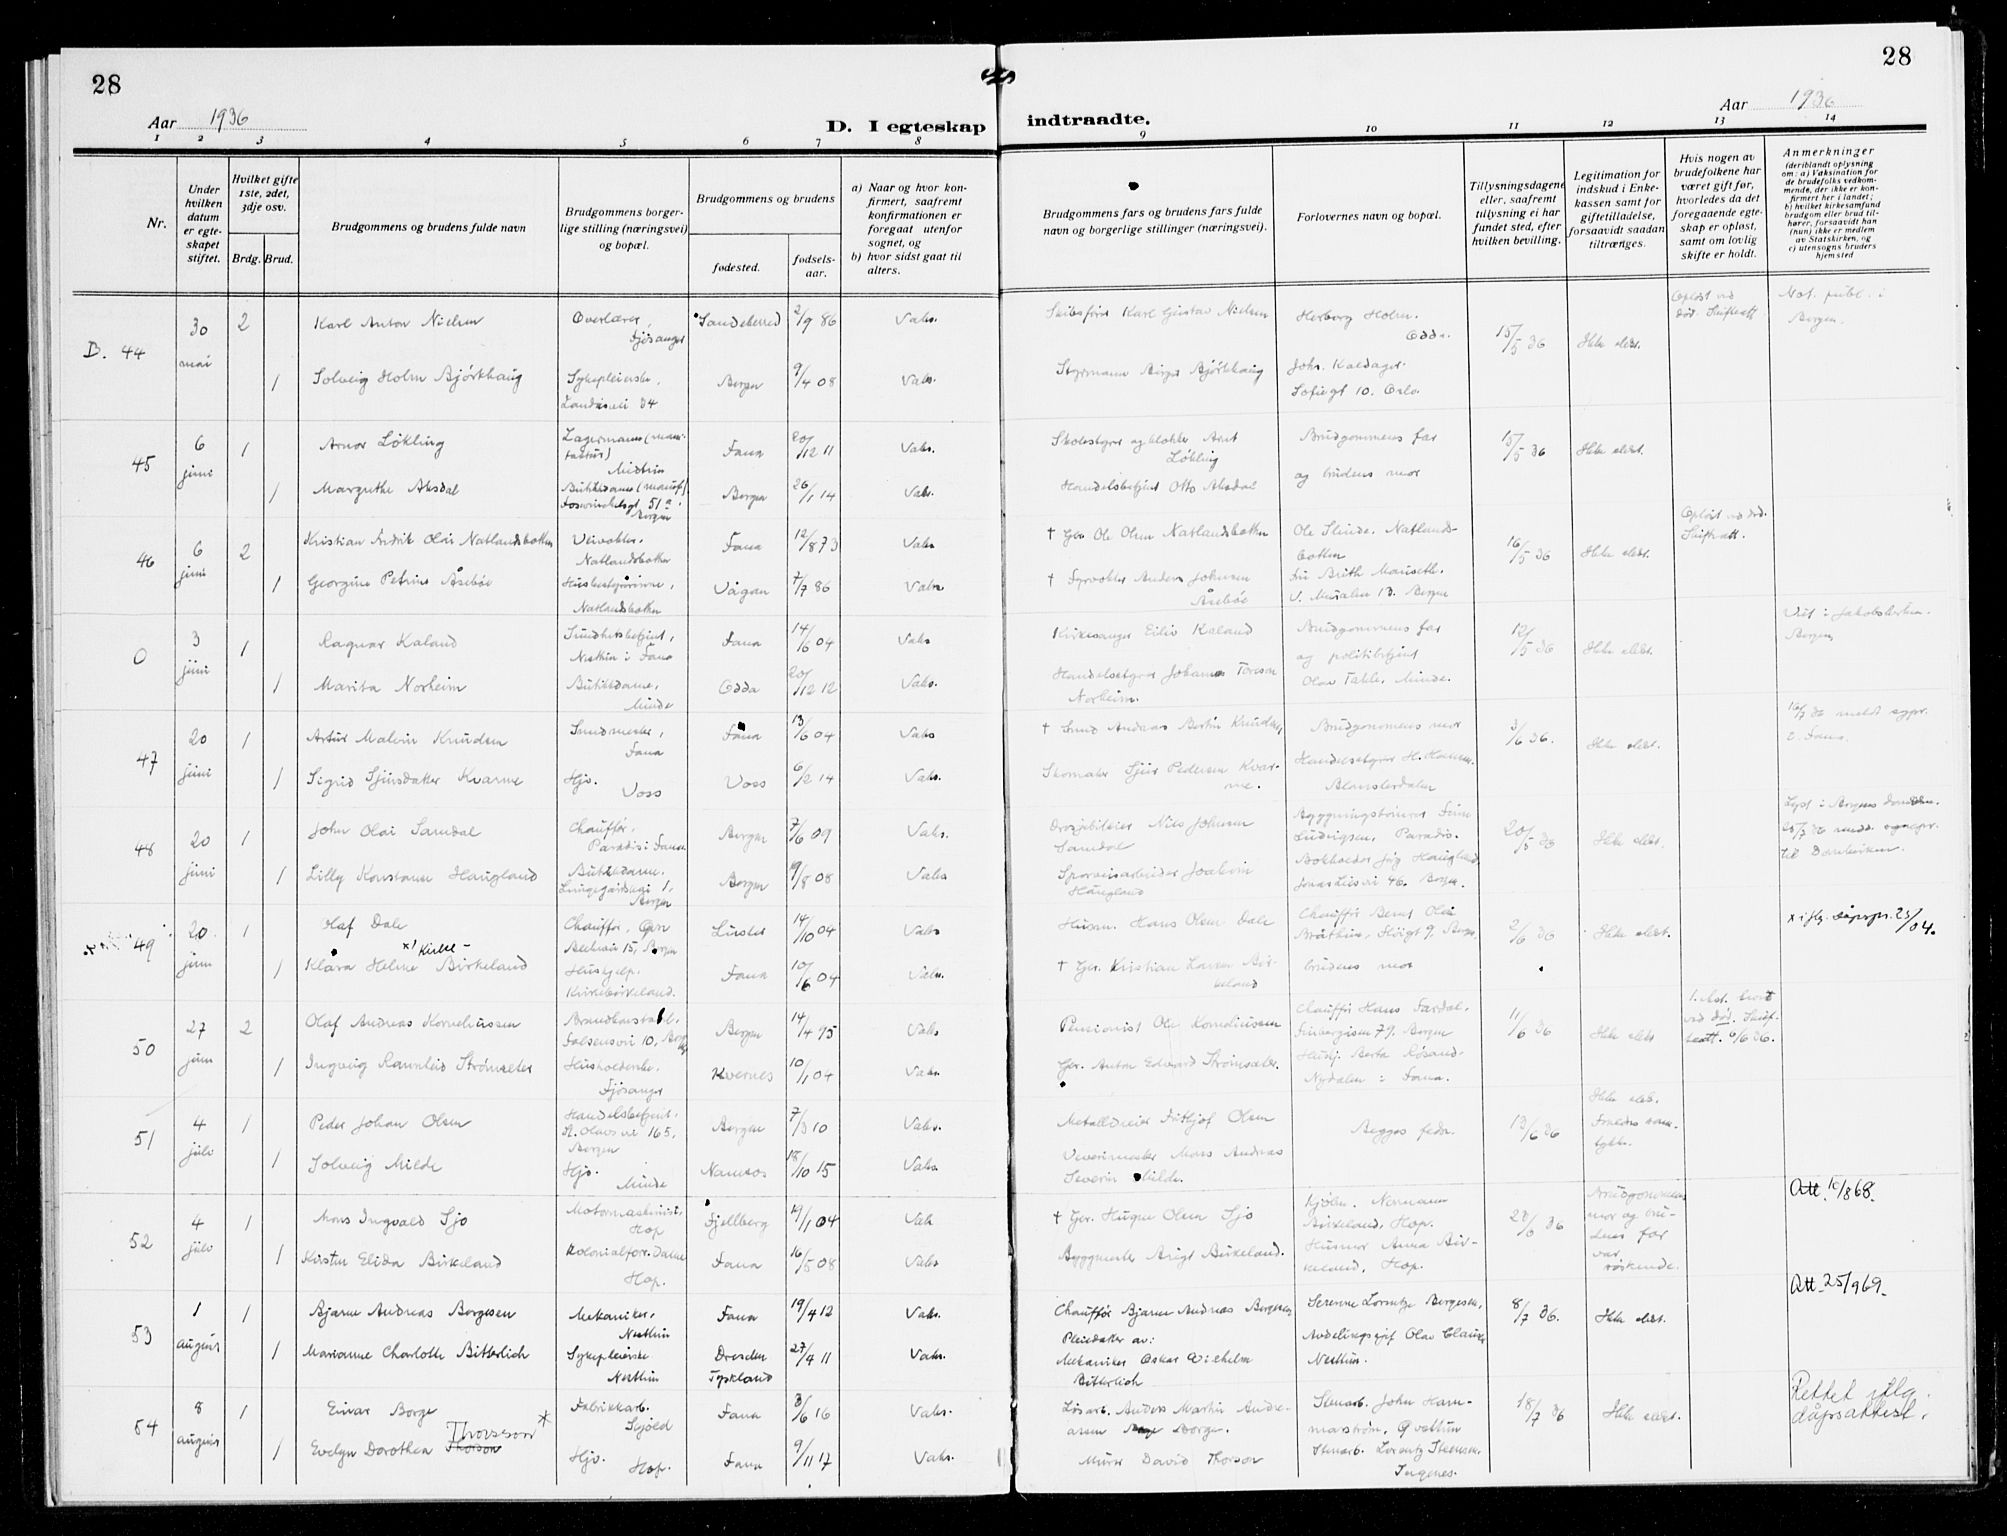 28
28
Aar 1936
D. I egteskap
indtraadte.
Aar 1936
1 2 3 4 5 6 7 8
9 10 11 12 13 14
Nr.
Under hvilken datum er egteskapet stiftet.
Hvilket gifte 1ste, 2det, 3dje osv.
Brdg. Brud.
Brudgommens og brudens fulde navn
Brudgommens borgerlige stilling (næringsvei) og bopæl.
Brudgommens og brudens
fødested.
fødselsaar.
a) Naar og hvor konfirmert, saafremt konfirmationen er foregaat utenfor sognet, og
b) hvor sidst gaat til alters.
Brudgommens fars og brudens fars fulde navn og borgerlige stillinger (næringsvei).
Forlovernes navn og bopæl.
Tillysningsdagene eller, saafremt tillysning ei har fundet sted, efter hvilken bevilling.
Legitimation for indskud i Enkekassen samt for giftetilladelse, forsaavidt saadan tiltrænges.
Hvis nogen av brudefolkene har været gift før, hvorledes da det foregaaende egteskap er opløst, samt om lovlig skifte er holdt.
Anmerkninger (deriblandt oplysning om: a) Vaksination for de brudefolks vedkommende, der ikke er konfirmert her i landet; b) hvilket kirkesamfund brudgom eller brud tilhører, forsaavidt han (hun) ikke er medlem av Statskirken, og c) utensogns bruders hjemsted
B. 44 30 mai 2 Karl Anton Nielsen Overlærer, Fjøsanger Sandeherred 2/9 86 Vaks. Skibsfører Karl Gustav Nielsen Herborg Holm. Odda. 15/5 36 Ikke eldet. Opløst ved død. Skifteatt. Not. publ. i Bergen.
1 Solveig Holm Bjørkhaug Sykepleierske, Landåsvei 34 Bergen 9/4 08 Vaks. Styrmann Birger Bjørkhaug Johs. Kaldager. Sofiegt 10. Oslo.
45 6 juni 1 Arnor Løkling Lagermann Fana 20/12 11 Vaks. Skolestyrer og klokker Arnt Løkling Brudgommens far 15/5 36 Ikke eldet.
1 Margrethe Aksdal Butikkdame 51a Bergen Bergen 26/1 14 Vaks. Handelsbetjent Otto Aksdal og brudens mor
46 6 juni 2 Kristian Fredrik Olai Natlandsbotten Veivokter, Natlandsbotten Fana 12/8 73 Vaks † Gbr. Ole Olsen Natlandsbotten Ole Slinde. Natlandsbotten 16/5 36 Ikke eldet. Opløst ved død. Skifteatt.
1 Georgine Petrine Åsebøe Husbestyrerinne, Natlandsbotten Vågan 7/7 86 Vaks † Fyrvokter Anders Johnsen Åsebøe Fru Brith Mauseth. Bergen
0 3 juni 1 Ragnar Kaland Sundhetsbetjent, Nesttun i Fana Fana 14/6 04 Vaks Kirkesanger Eiliv Kaland Brudgommens far 12/5 36 Ikke eldet. Viet i Jakobskirken. Bergen
1 Marita Norheim Butikkdame, Minde Odda 20/12 12 Vaks. Handelsstyrer Johannes Toresen Norheim. og politibetjent Olav Takle, Minde.
47 20 juni 1 Artur Malvin Knudsen Smedmester, Fana Fana 13/6 04 Vaks † Smed Andreas Bertin Knudsen, Brudgommens mor 3/6 36. Ikke eldet. 16/7 36 meldt sogpr. i Fana.
1 Sigrid Sjursdatter Kvarme Hjv. Voss Voss 6/2 14 Vaks. Skomaker Sjur Pedersen Kvarme. Handelsstyrer H. Hansen. Blomsterdalen
48 20 juni 1 John Olai Samdal Chauffør, Paradis i Fana Bergen 7/6 09 Vaks. Drosjebileier Nils Johnsen Samdal Ludvigsen, Paradis. 20/5 36 Ikke eldet. Lyst i Bergens domkirke. 25/7 36 medd. sognepr. til Domkirken.
1 Lilly Konstanse Haugland Butikkdame. Lungegårdskai 1, Bergen Bergen 9/8 08 Vaks Sporveisarbeider Joakim Haugland Bokholder Haugland Jonas Liesvei 46. Bergen.
49 20 juni 1 Olaf Dale Chauffør, 15, Bergen Luster 14/10 04 Vaks Husm. Hans Olsen Dale Chauffør Bernt Olai 2/6 36 Ikke eldet. x iflg. dåpspr. 23/ 04.
x) Kirke-
1 Klara Helene Birkeland Hushjelp. Kirkebirkeland. Fana 10/6 04 Vaks. † Gbr. Kristian Larsen Birkeland brudens mor
50 27 juni 2 Olaf Andreas Korneliussen Brandkonstabel. Falsensvei 10, Bergen Bergen 14/4 95 Vaks Pensionist Ole Korneliussen Chauffør Hans Fardal, Bergen 11/6 36 Ikke eldet ved død. Skifteatt. 6/6 36.
1 Ingveig Rannleid Strømseter Husholderske. Fjøsanger Kvernes 10/1 04 Vaks. Gbr. Anton Edvard Strømseter. Hushj. Berta Røsand. Nydalen i Fana.
51 4 juli 1 Peder Johan Olsen Handelsbetjent. St. Olavs vei 165, Bergen Bergen 7/3 10 Vaks. Metalldreier Fritjof Olsen Begges fedre. 13/6 36 Ikke eldet. Foreldres samtykke.
1 Solveig Milde Hjv. Minde Namsos 18/10 15 Vaks. Vevermester Mons Andreas Severin Milde.
52 4 juli 1 Mons Ingvald Sjo Motormaskinist, Hop Fjellberg 19/1 04 Vak † Gbr. Hugne Olsen Sjo Kjøbm. Nermann Birkeland, Hop. 27/6 36 Brudgommens mor og brudens far var røskende. Att. 16/8 68.
1 Kirsten Elida Birkeland Kolonialforr. Dame Hop. Fana 16/5 08 Vaks. Byggmester Birger Birkeland. Husmor Anna Birkeland, Hop.
53 1 august 1 Bjarne Andreas Borgesen Mekaniker, Nesttun Fana 19/4 12 Vaks. Chauffør Bjarne Andreas Borgesen, Serenne Lorentze Borgesen, 8/7 36. Ikke eldet. Att. 25/9 69.
1 Marianne Charlotte Bitterlich Sykepleierske Nesttun Dresden Tyskland 27/4 11 Vaks. Pleiedatter av: Mekaniker Oskar Wilhelm Bitterlich Avdelingssjef Olav Clausen Nesttun.
54 8 august 1 Einar Borge Fabrikkarb. Skjold Fana 3/6 16 Vaks. Løsarb. Anders Martin Andreassen Borge. Stenarb. John Hammarstrøm, Øvsttun 18/7 36 Ikke eldet. Rettet iflg. dåpsattest.
Thorsson *
1 Evelyn Dorothea Thorson Hjv. Hop. Fana 9/11 17 Vaks. Murer David Thorson Stenarb. Lorentz Steensen.